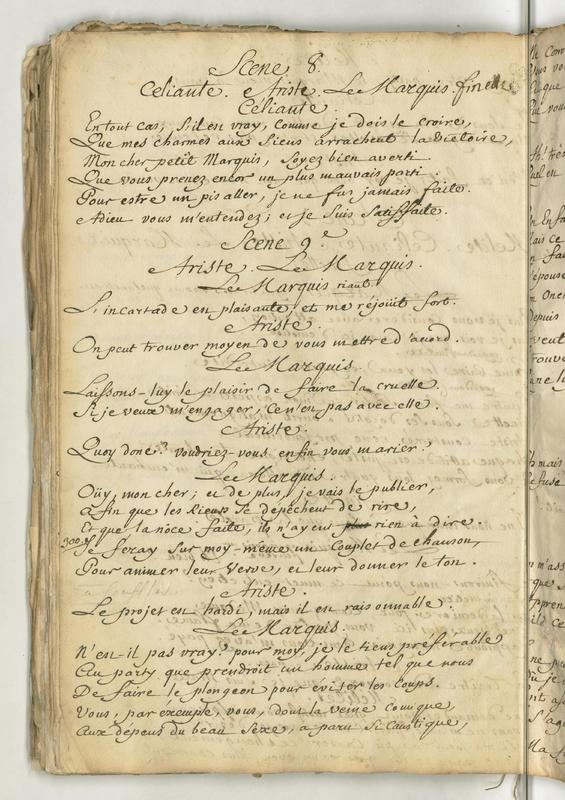 Scene 8.
Celiante. Ariste. Le Marquis. finette
Celiante.
En tout cas, s'il est vray, comme je dois le croire,
Que mes charmes aux Siens arrachent la victoire,
Mon cher petit Marquis, soyez bien averti
Que vous prenez encor un plus mauvais parti.
Pour estre un pis aller, je ne fus jamais faite.
Adieu vous m'entendez; et je suis satisfaite.
Scene 9e
Ariste. Le Marquis.
Le Marquis riant.
L'incartade est plaisante, et me réjouit fort.
Ariste.
On peut trouver moyen de vous mettre d'acord.
Le Marquis
Laissons-luy le plaisir de faire la cruelle.
Si je veux m'engager, ce n'est pas avec elle.
Ariste.
Quoy donc? voudriez-vous enfin vous marier?
Le Marquis.
Oüy, mon cher; et de plus, je vais le publier,
Afin que les Rieurs se depêchent de rire,
Et que la nôce faite, ils n'ayent plus rien à dire.
300 Je feray sur moy-même un Couplet de chanson,
Pour animer leur verve, et leur donner le ton.
Ariste.
Le projet est hardi, mais il est raisonnable.
Le Marquis.
N'est-il pas vray? pour moy, je le tiens préférable
Au party que prendroit un homme tel que nous
De faire le plongeon pour eviter les coups.
Vous, par exemple, vous, dont la veine comique,
Aux depens du beau Sexe, a paru si caustique,